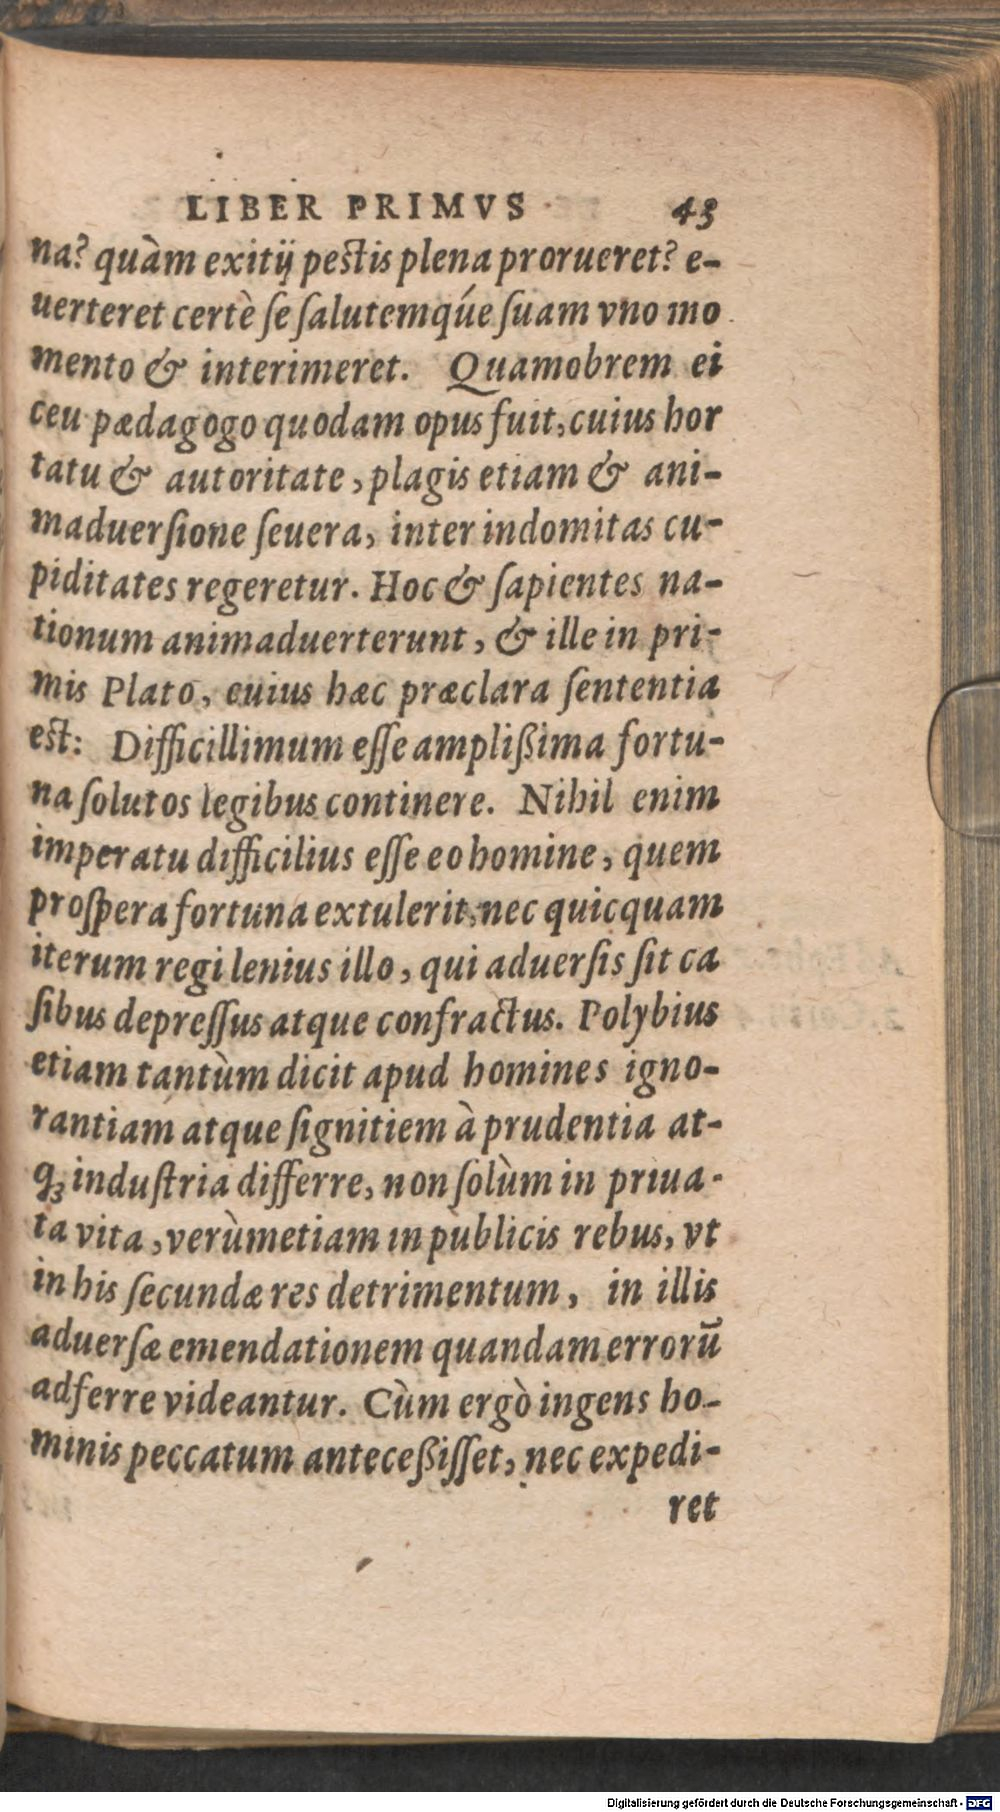 LIBER PRIMVS 43
na? quàm exitij pestis plena prorueret? e-
uerteret certè se salutemq́ue suam vno mo
mento & interimeret. Quamobrem ei
ceu pædagogo quodam opus fuit, cuius hor
tatu & autoritate, plagis etiam & ani-
maduersione seuera, inter indomitas cu-
piditates regeretur. Hoc & sapientes na-
tionum animaduerterunt, & ille in pri-
mis Plato, cuius hæc præclara sententia
est: Difficillimum esse amplißima fortu-
na solutos legibus continere. Nihil enim
imperatu difficilius esse eo homine, quem
prospera fortuna extulerit, nec quicquam
iterum regi lenius illo, qui aduersis sit ca
sibus depressus atque confractus. Polybius
etiam tantùm dicit apud homines igno-
rantiam atque signitiem à prudentia at-
qꝫ industria differre, non solùm in priua-
ta vita, verùmetiam in publicis rebus, vt
in his secundæ res detrimentum, in illis
aduersæ emendationem quandam errorū
adferre videantur. Cùm ergò ingens ho-
minis peccatum anteceßisset, nec expedi-
ret
Digitalisierung gefördert durch die Deutsche Forschungsgemeinschaft - DFG